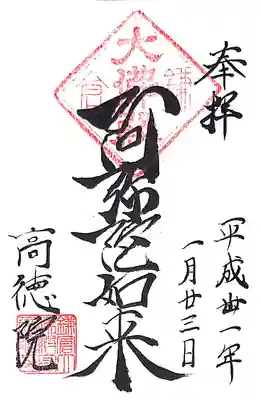 奉拝
平成丗一年
一月廿三日
阿弥陀如来
高徳院
大佛殿
鎌倉